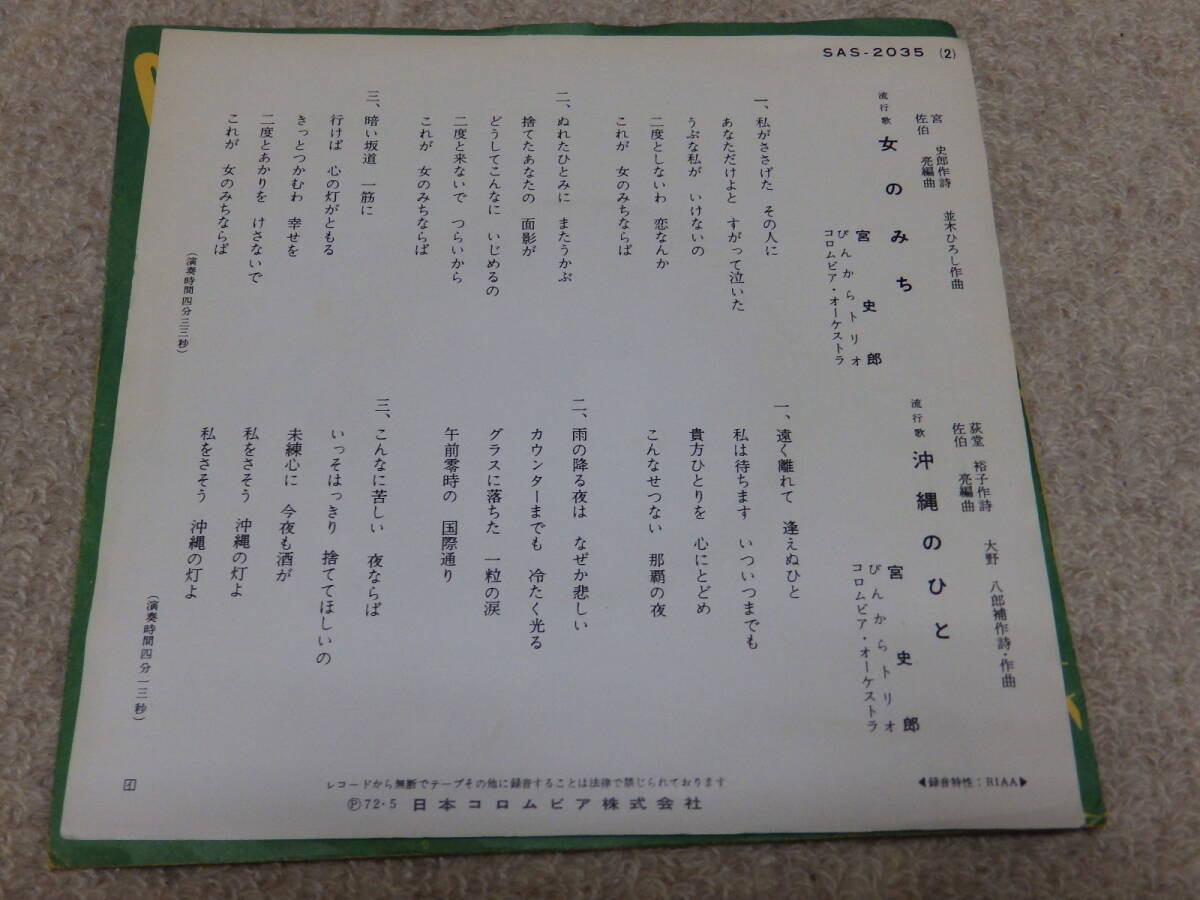 SAS-2035 (2)
流行歌
女のみち
宮 史郎作詩
並木ひろし作曲
佐伯 亮編曲
宮 史郎
ぴんからトリオ
コロムビア・オーケストラ
一、私がささげた その人に
あなただけよと すがって泣いた
うぶな私が いけないの
二度としないわ 恋なんか
これが 女のみちならば
二、ぬれたひとみに またうかぶ
捨てたあなたの 面影が
どうしてこんなに いじめるの
二度と来ないで つらいから
これが 女のみちならば
三、暗い坂道 一筋に
行けば 心の灯がともる
きっとつかむわ 幸せを
二度とあかりを けさないで
これが 女のみちならば
(演奏時間四分三三秒)
流行歌
沖縄のひと
荻堂 裕子作詩
大野 八郎補作詩・作曲
佐伯 亮編曲
宮 史郎
ぴんからトリオ
コロムビア・オーケストラ
一、遠く離れて 逢えぬひと
私は待ちます いついつまでも
貴方ひとりを 心にとどめ
こんなせつない 那覇の夜
二、雨の降る夜は なぜか悲しい
カウンターまでも 冷たく光る
グラスに落ちた 一粒の涙
午前零時の 国際通り
三、こんなに苦しい 夜ならば
いっそはっきり 捨ててほしいの
未練心に 今夜も酒が
私をさそう 沖縄の灯よ
私をさそう 沖縄の灯よ
(演奏時間四分一三秒)
レコードから無断でテープその他に録音することは法律で禁じられております
◀録音特性:RIAA▶
Ⓟ72・5 日本コロムビア株式会社